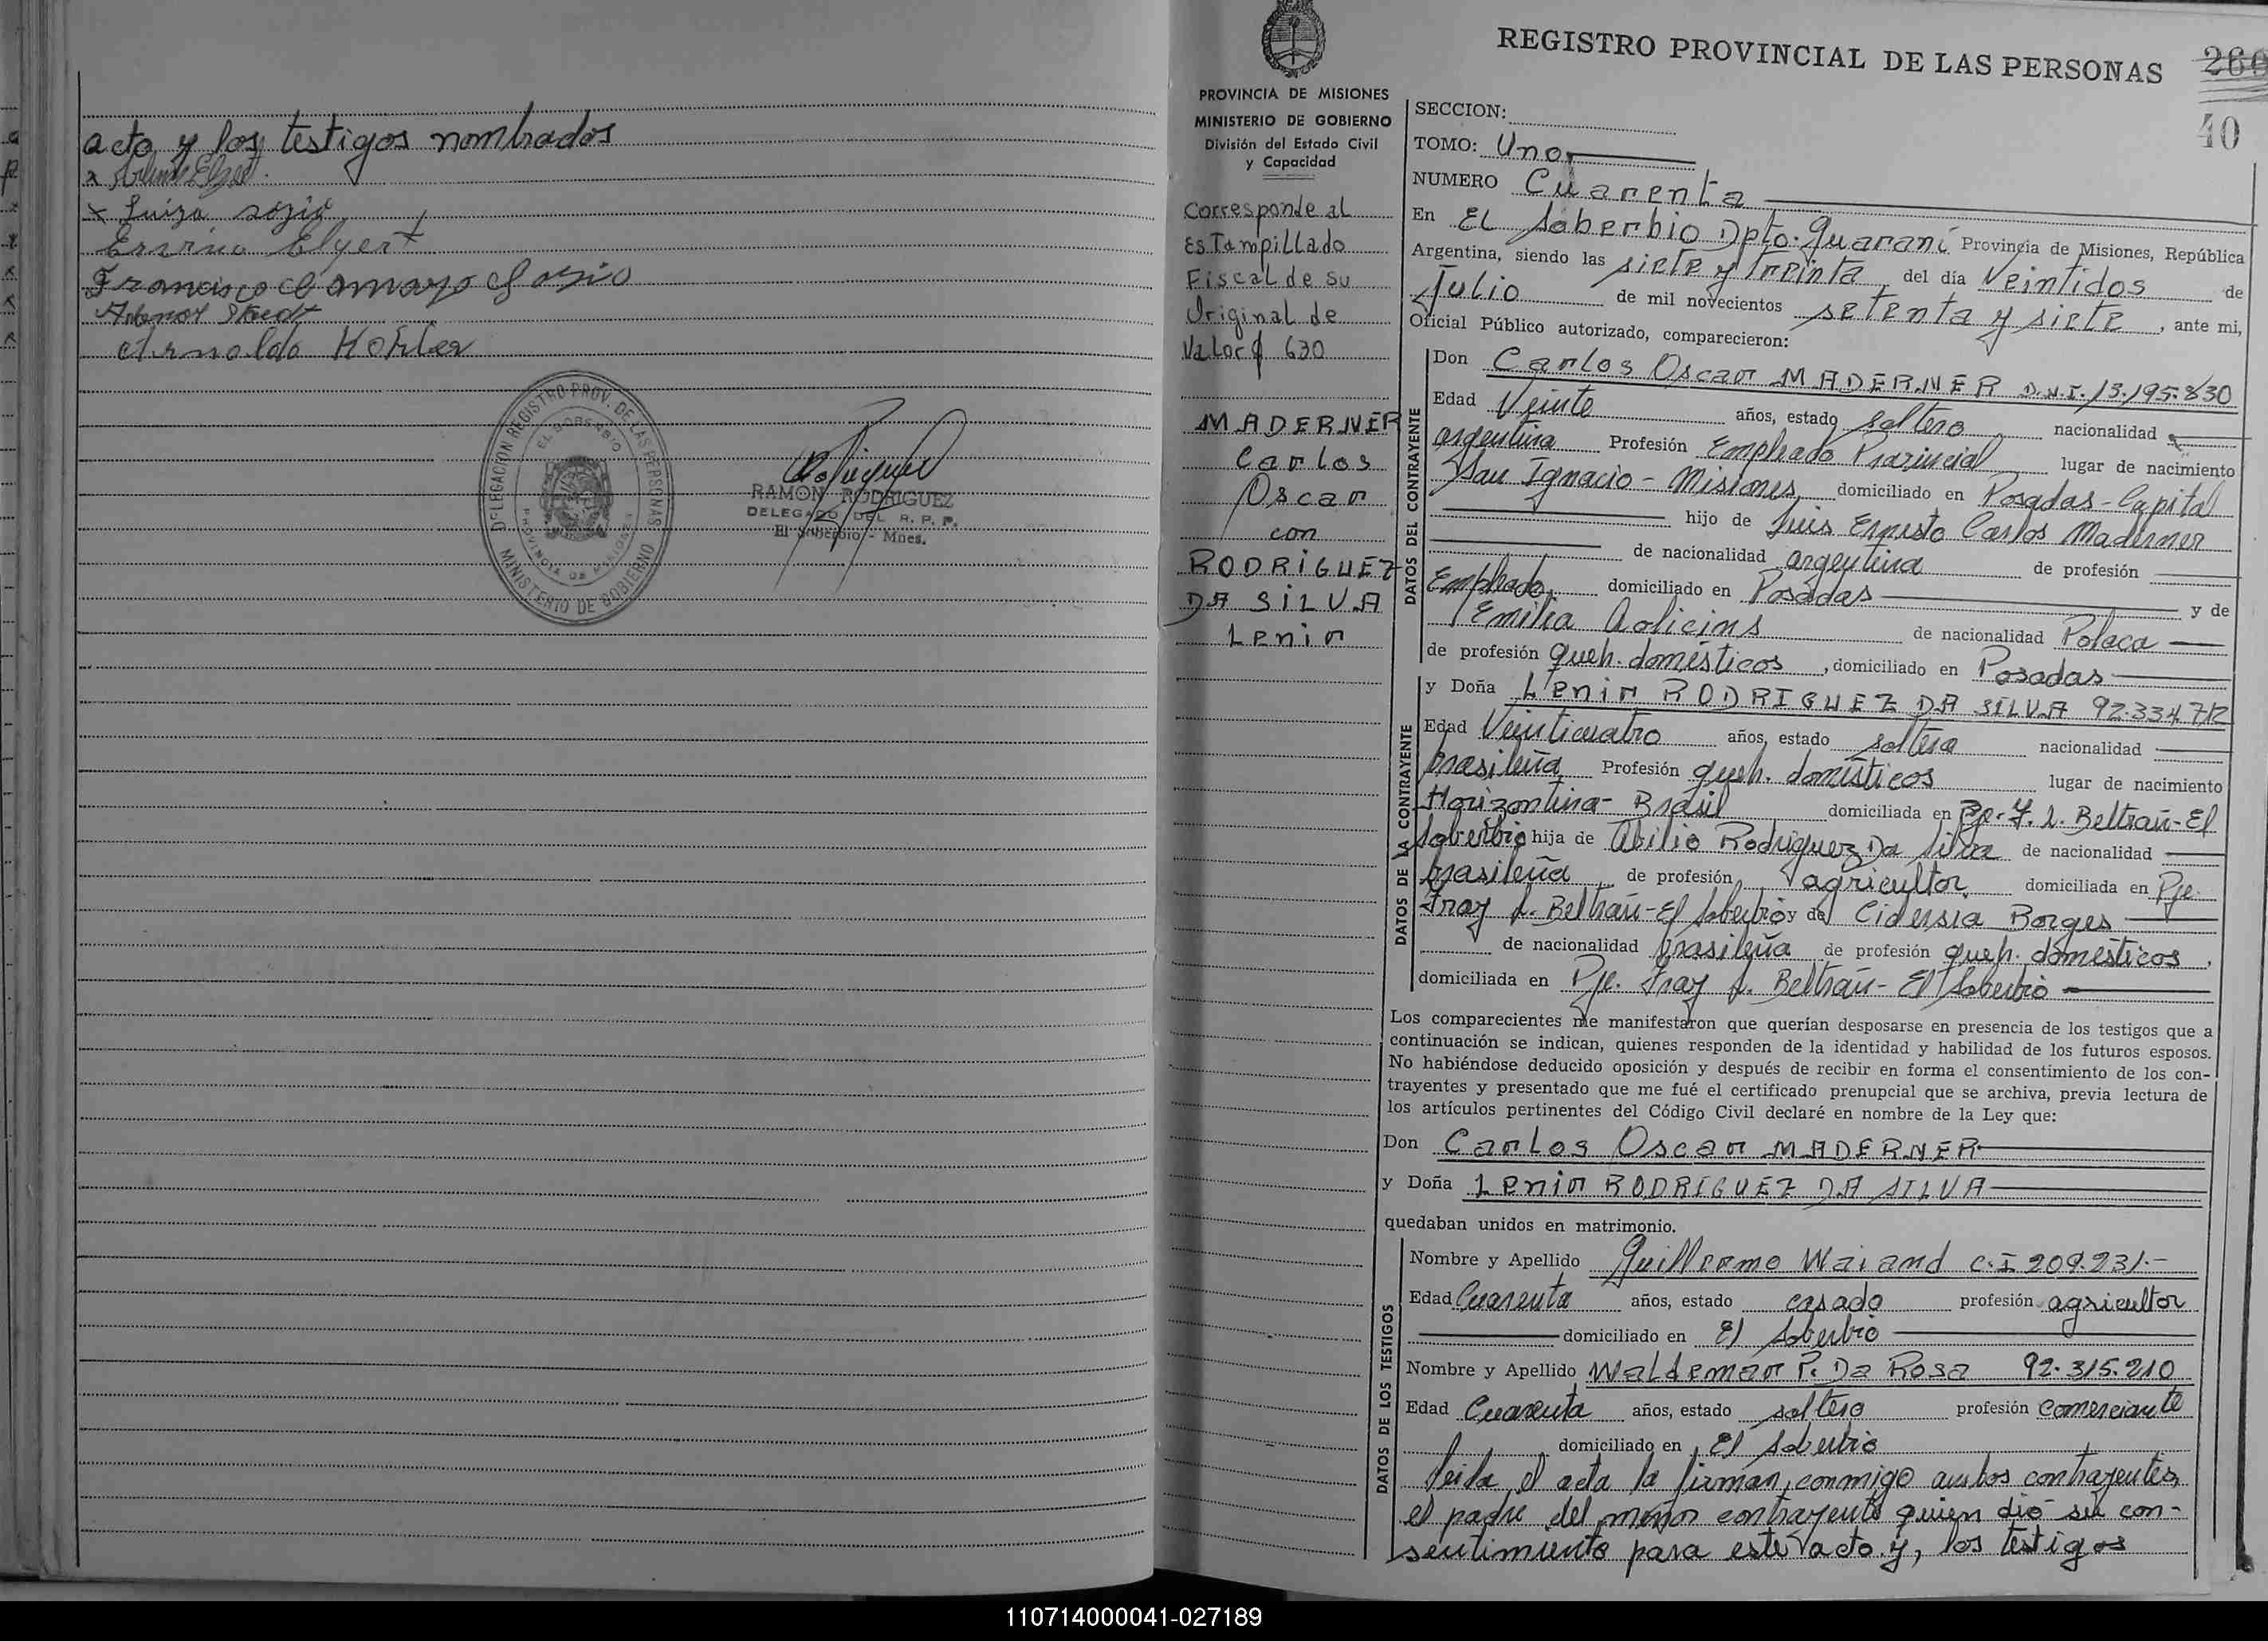 acto y los testigos nombrados
x Luiza
Ervino Elgert
Francisco
Arnoldo Kohler
DELEGACION REGISTRO PROV. DE LAS PERSONAS
EL SOBERBIO
PROVINCIA DE MISIONES
MINISTERIO DE GOBIERNO
RAMON RODRIGUEZ
DELEGADO DEL R. P. P.
El Soberbio - Mnes.
REGISTRO PROVINCIAL DE LAS PERSONAS
260
40
PROVINCIA DE MISIONES
MINISTERIO DE GOBIERNO
División del Estado Civil
y Capacidad
Corresponde al
Estampillado
Fiscal de su
Original de
Valor $ 630
MADERNER
Carlos
Oscar
con
RODRIGUEZ
DA SILVA
Lenir
SECCION:
TOMO: Uno
NUMERO Cuarenta
En El Soberbio Dpto. Guaraní Provincia de Misiones, República
Argentina, siendo las siete y treinta del día Veintidos de
Julio de mil novecientos setenta y siete, ante mi,
Oficial Público autorizado, comparecieron:
DATOS DEL CONTRAYENTE
Don Carlos Oscar MADERNER D.N.I. 13.195.830
Edad Veinte años, estado soltero nacionalidad
argentina Profesión Empleado Provincial lugar de nacimiento
San Ignacio - Misiones, domiciliado en Posadas - Capital
hijo de Luis Ernesto Carlos Maderner
de nacionalidad argentina de profesión
Empleado, domiciliado en Posadas y de
Emilia de nacionalidad Polaca
de profesión queh. domésticos, domiciliado en Posadas
DATOS DE LA CONTRAYENTE
y Doña Lenir RODRIGUEZ DA SILVA 92.334.712
Edad Veinticuatro años, estado soltera nacionalidad
brasileña Profesión queh. domésticos lugar de nacimiento
Horizontina - Brasil domiciliada en Pje. F. L. Beltrán - El
Soberbio hija de Abilio Rodriguez Da Silva de nacionalidad
brasileña de profesión agricultor domiciliada en Pje.
Fray L. Beltrán - El Soberbio y de Cidersia Borges
de nacionalidad brasileña de profesión queh. domésticos,
domiciliada en Pje. Fray L. Beltrán - El Soberbio
Los comparecientes me manifestaron que querían desposarse en presencia de los testigos que a
continuación se indican, quienes responden de la identidad y habilidad de los futuros esposos.
No habiéndose deducido oposición y después de recibir en forma el consentimiento de los con-
trayentes y presentado que me fué el certificado prenupcial que se archiva, previa lectura de
los artículos pertinentes del Código Civil declaré en nombre de la Ley que:
Don Carlos Oscar MADERNER
y Doña Lenir RODRIGUEZ DA SILVA
quedaban unidos en matrimonio.
DATOS DE LOS TESTIGOS
Nombre y Apellido Guillermo Waiand C.I 209.231.-
Edad Cuarenta años, estado casado profesión agricultor
domiciliado en El Soberbio
Nombre y Apellido Waldemar P. Da Rosa 92.315.210
Edad Cuarenta años, estado soltero profesión Comerciante
domiciliado en El Soberbio
Leida el acta la firman conmigo ambos contrayentes,
el padre del menor contrayente quien dió su con-
sentimiento para este acto y, los testigos
110714000041-027189